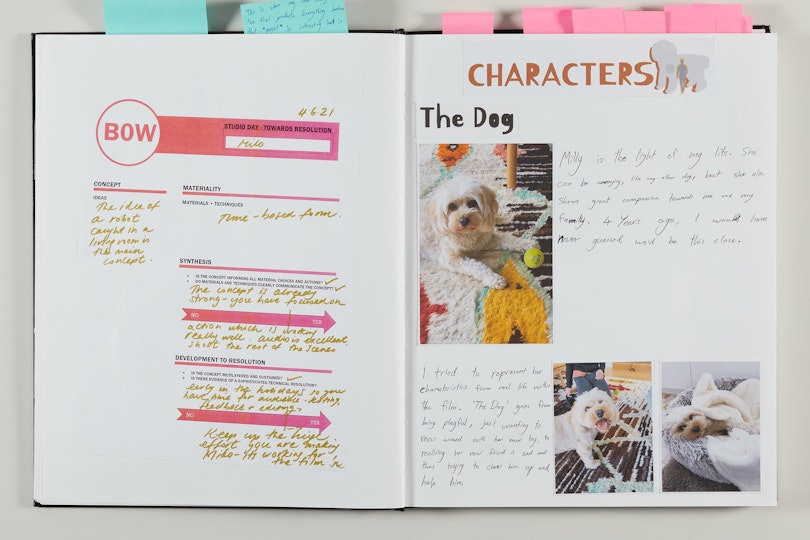 This is who my
the final product. Everything before
did
4.6.21
BOW
STUDIO DAY - TOWARDS RESOLUTION
Milo
CONCEPT
IDEAS
The idea of
a robot
caught in a
livingroom is
the main
concept.
MATERIALITY
MATERIALS + TECHNIQUES
Time-based form.
SYNTHESIS
• IS THE CONCEPT INFORMING ALL MATERIAL CHOICES AND ACTIONS? ✓
• DO MATERIALS AND TECHNIQUES CLEARLY COMMUNICATE THE CONCEPT? ✓
The concept is already
strong - you have focused on
NO YES
action which is working
really well. Audio is excellent,
shoot the rest of the scenes
DEVELOPMENT TO RESOLUTION
• IS THE CONCEPT MULTILAYERED AND SUSTAINED? ✓
• IS THERE EVIDENCE OF A SOPHISTICATED TECHNICAL RESOLUTION?
early in the holidays so you
have time for audience-testing,
feedback + editing.
NO YES
Keep up the high
effort you are making
Milo - it's working for
the film
CHARACTERS
The Dog
Milly is the light of my life. She
can be angry, like my other dog, but she also
shows great companion towards me and my
family. 4 Years ago, I would have
never guessed we'd be this close.
I tried to represent her
characteristics from real life within
the film. 'The Dog' goes from
being playful, just wanting to
mess around with her new toy, to
realising her new friend is sad and
then trying to cheer him up and
help him.